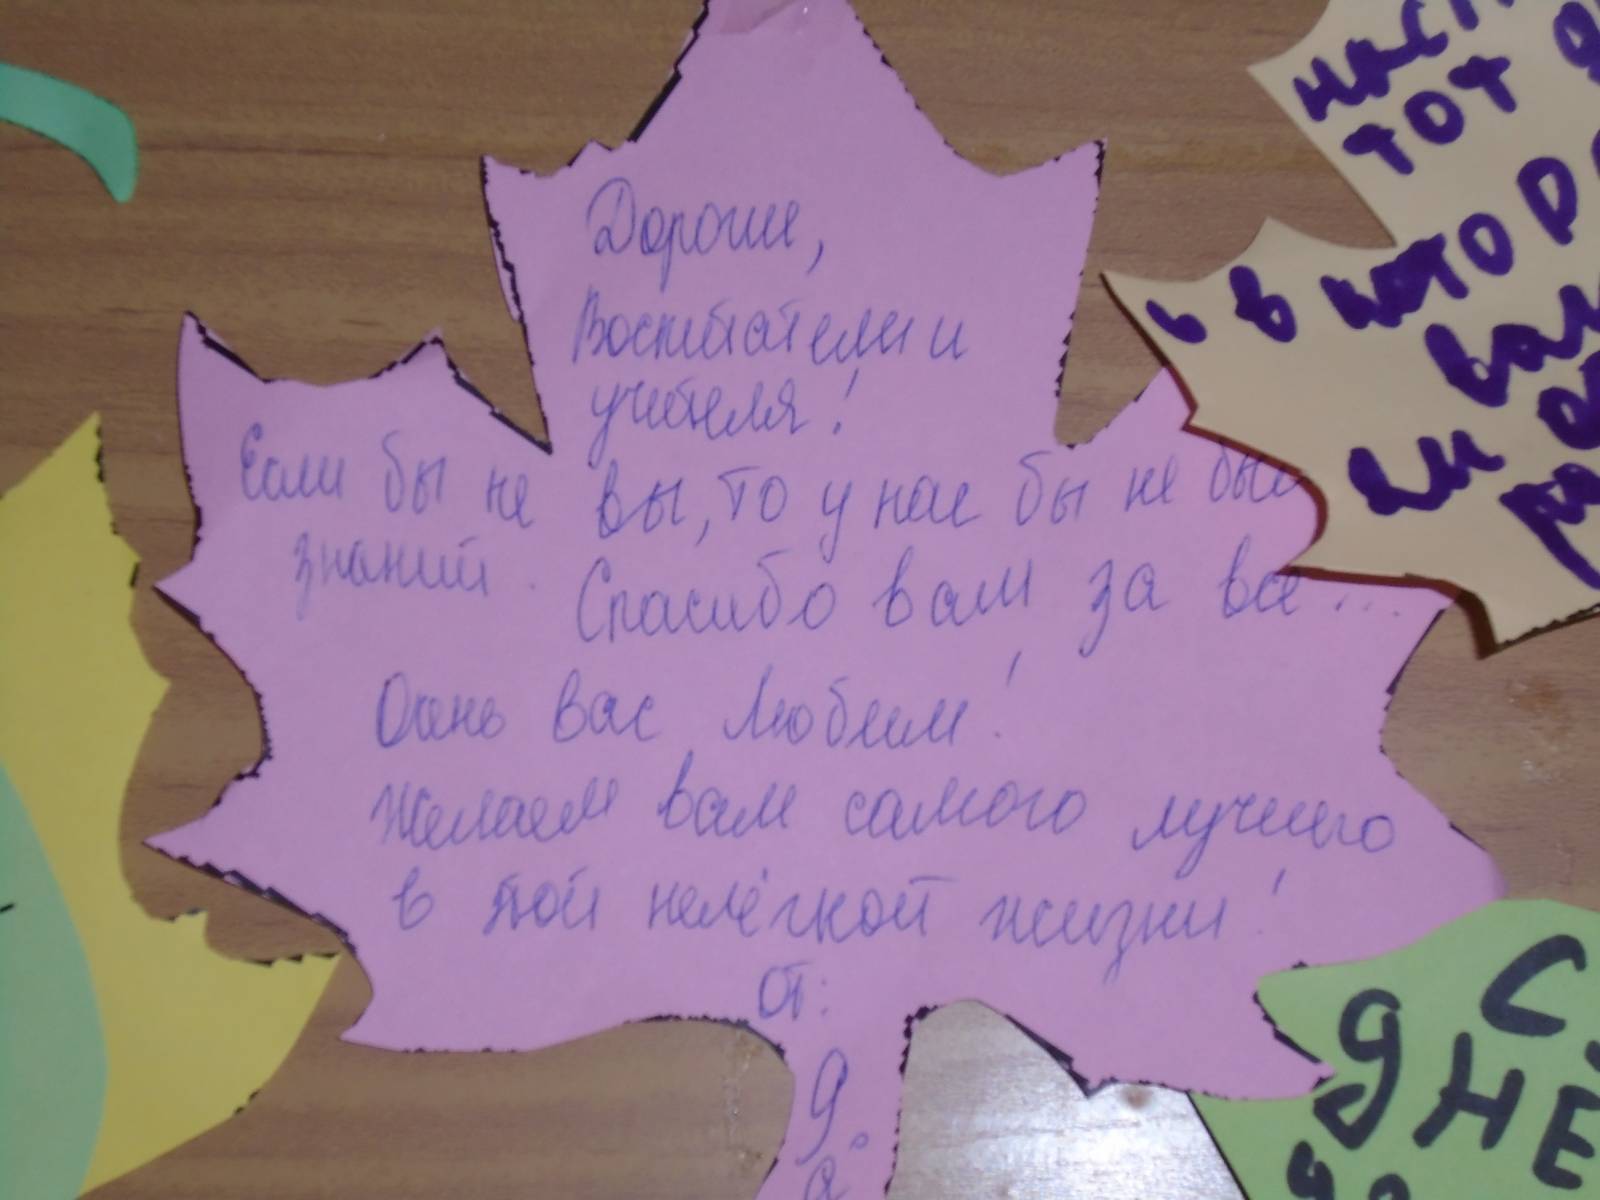 Дорогие,
Воспитатели и
учителя!
Если бы не вы, то у нас бы не был
знаний. Спасибо вам за все...
Очень вас любим!
Желаем вам самого лучшего
в этой нелёгкой жизни!
от:
тот
в
С
днё